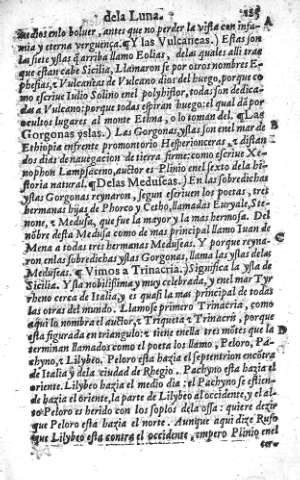 dela Luna. 185
medios enlo boluer, antes que no perder la vista con infa- A
mia y eterna verguença. ¶Y las Vulcaneas.) Estas son
las siete yslas q̃ arriba llamo Eolias, delas quales alli traç
que estan cabe Sicilia, Llamaron se por otros nombres E-
phesias, e Vulcaneas de Vulcano dios del huego, porque co
mo escriue Iulio Solino enel polyhistor, todas son dedica-
das a Vulcano: porque todas espiran huego: el qual dã por
ocultos lugares al monte Ethna, o lo toman del. ¶Las
Gorgonas yslas.) Las Gorgonas yslas son enel mar de B
Ethiopia enfrente promontorio Hesperionceras, e distan
dos dias de nauegacion de tierra firme: como escriue Xe-
nophon Lampsaceno, auctor es Plinio enel sexto dela hi-
storia natural. ¶Delas Meduseas.) En las sobredichas
yslas Gorgonas reynaron, segun escriuen los poetas, tres
hermanas hijas de Phorco y Cetho, llamadas Euryale, Ste-
none, e Medusa, que fue la mayor y la mas hermosa. Del
nõbre desta Medusa como de mas principal llamo Iuan de
Mena a todas tres hermanas Meduseas. Y porque reyna- C
ron enlas sobredichas yslas Gorgonas, llama las yslas delas
Meduseas. ¶Vimos a Trinacria.) Significa la ysla de
Sicilia. Ysla nobilissima y muy celebrada, y enel mar Tyr
rheno cerca de Italia, y es quasi la mas principal de todas
las otras del mundo. Llamose primero Trinacria, como
aqui la nombra el auctor, e Triquetra e Trinacris, porque
esta figurada en triangulo: e tiene enella tres mõtes que la D
terminan llamados como el poeta los llamo, Peloro, Pa-
chyno, e Lilybeo. Peloro esta hazia el septentrion encõtra
de Italia y dela ciudad de Rhegio. Pachyno esta hazia el
oriente. Lilybeo hazia el medio dia: el Pachyno se estien-
de hazia el oriente, la parte de Lilybeo al occidente, y el al-
to Peloro es herido con los soplos dela ossa: quiere dezir
que Peloro esta hazia el norte. Aunque aqui dize Rufo
que Lilybeo esta contra el occidente, empero Plinio enel